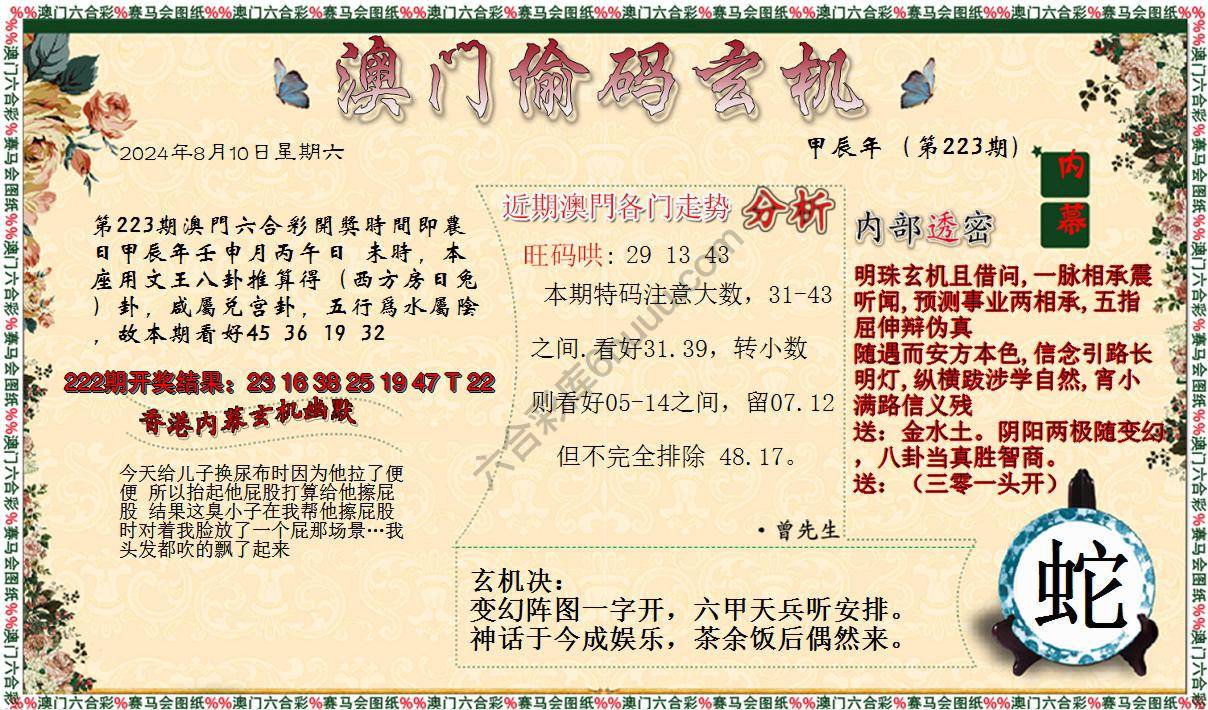 %%澳门六合彩%赛马会图纸%%澳门六合彩%赛马会图纸%%澳门六合彩%赛马会图纸%%澳门六合彩%赛马会图纸%%澳门六合彩%赛马会图纸%%澳门六合彩%赛马会图纸%%
澳门偷码玄机
2024年8月10日星期六
甲辰年（第223期）
内幕
第223期澳門六合彩開獎時間即農
日甲辰年壬申月丙午日 未時，本
座用文王八卦推算得（西方房日兔
）卦，咸屬兑宫卦，五行爲水屬陰
，故本期看好45 36 19 32
222期开奖结果：23 16 38 25 19 47 T 22
香港内幕玄机幽默
今天给儿子换尿布时因为他拉了便
便 所以抬起他屁股打算给他擦屁
股 结果这臭小子在我帮他擦屁股
时对着我脸放了一个屁那场景…我
头发都吹的飘了起来
近期澳門各门走势 分析
旺码哄: 29 13 43
本期特码注意大数，31-43
之间.看好31.39，转小数
则看好05-14之间，留07.12
但不完全排除 48.17。
·曾先生
内部透密
明珠玄机且借问,一脉相承震
听闻,预测事业两相承,五指
屈伸辩伪真
随遇而安方本色,信念引路长
明灯,纵横跋涉学自然,宵小
满路信义残
送：金水土。阴阳两极随变幻
，八卦当真胜智商。
送：（三零一头开）
玄机决：
变幻阵图一字开，六甲天兵听安排。
神话于今成娱乐，茶余饭后偶然来。
蛇
%%澳门六合彩%赛马会图纸%%澳门六合彩%赛马会图纸%%澳门六合彩%赛马会图纸%%澳门六合彩%赛马会图纸%%澳门六合彩%赛马会图纸%%澳门六合彩%赛马会图纸%%